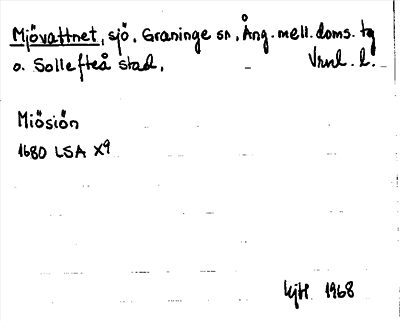 Mjövattnet, sjö. Graninge sn, Ång. mell. doms. tg
o. Sollefteå stad. Vrnl. l.
Miösiön
1680 LSA X9
1968